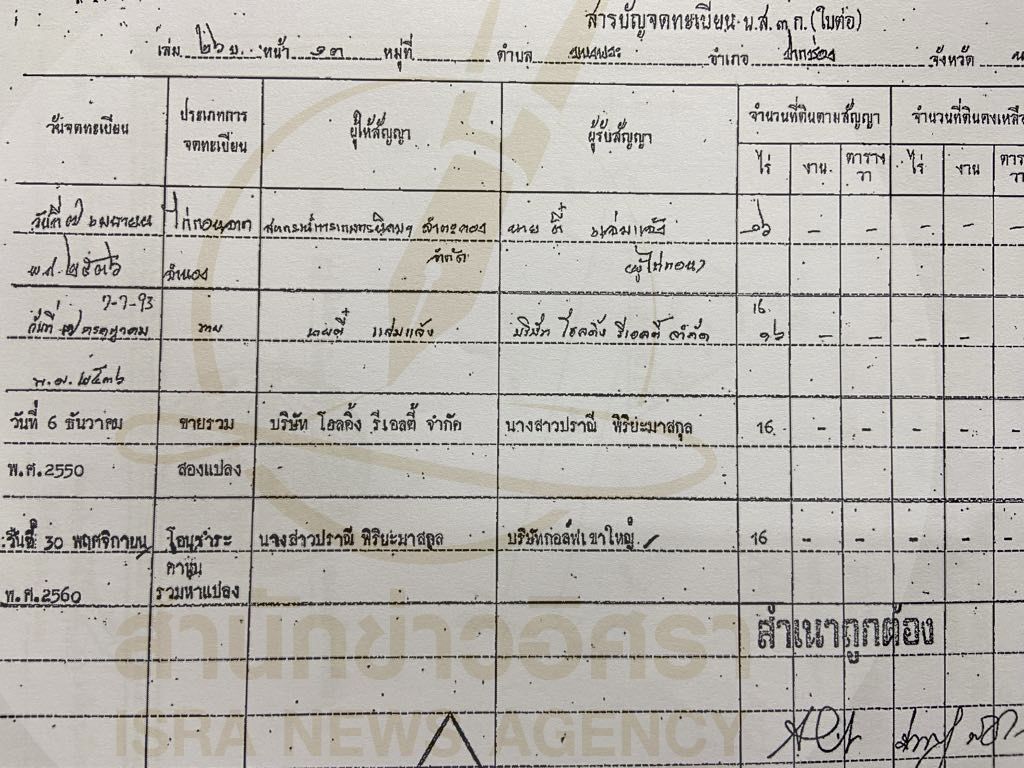 สารบัญจดทะเบียน น.ส.๓ ก. (ใบต่อ)
เล่ม ๒๖ ข. หน้า ๑๓ หมู่ที่ ตำบล อำเภอ ปากช่อง จังหวัด
วันจดทะเบียน ประเภทการจดทะเบียน ผู้ให้สัญญา ผู้รับสัญญา จำนวนที่ดินตามสัญญา จำนวนที่ดินคงเหลือ
ไร่ งาน ตารางวา ไร่ งาน
วันที่ ๗ เมษายน ไถ่ถอนจาก สหกรณ์การเกษตรนิคมฯ ลำตะคอง นาย ตี๋ แสมแล้ง ๑๖ – – – –
พ.ศ. ๒๕๓๖ จำนอง จำกัด (ผู้ไถ่ถอน)
7-7-93 16.
วันที่ ๗ กรกฎาคม ขาย นายตี๋ แสมแล้ง บริษัท โฮลดิ้ง รีเอลตี้ จำกัด ๑๖ – – – –
พ.ศ. ๒๕๓๖
วันที่ 6 ธันวาคม ขายรวม บริษัท โฮลดิ้ง รีเอลตี้ จำกัด นางสาวปราณี พิริยะมาสกุล 16 – – – –
พ.ศ.2550 สองแปลง
วันที่ 30 พฤศจิกายน โอนชำระ นางสาวปราณี พิริยะมาสกุล บริษัทกอล์ฟเขาใหญ่ 16 – – – –
ค่าหุ้น
พ.ศ.2560 รวมห้าแปลง
สำเนาถูกต้อง
สำนักข่าวอิศรา
ISRA NEWS AGENCY